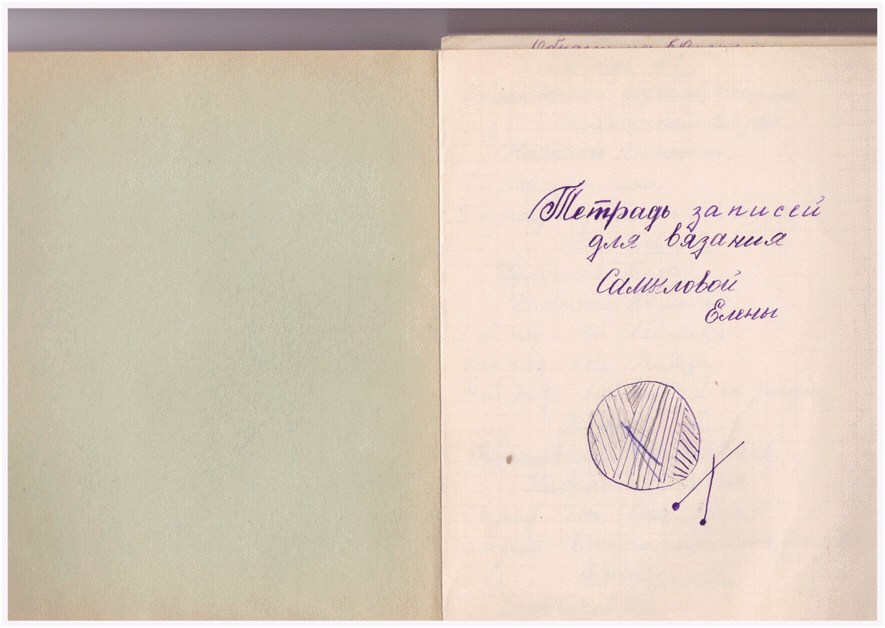 Тетрадь записей
для вязания
Самыловой
Елены